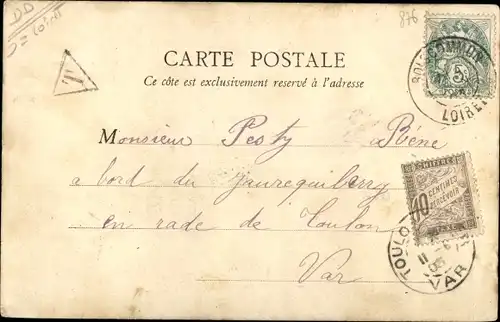 DD
876
T
CARTE POSTALE
Ce côté est exclusivement reservé à l'adresse
5
LOIRET
Monsieur Pesty Réné
à bord du Jaureguiberry
en rade de Toulon
Var
CHIFFRE
10
CENTIMES
A PERCEVOIR
TAXE
TOULON
11
VAR